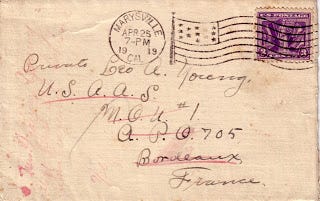 MARYSVILLE
APR 25
7-PM
1919
CAL.
U.S. POSTAGE
3 3
Private Leo A. Young.
U.S.A.A.S
M.O.U #1
A.P.O 705
Bordeaux
France.